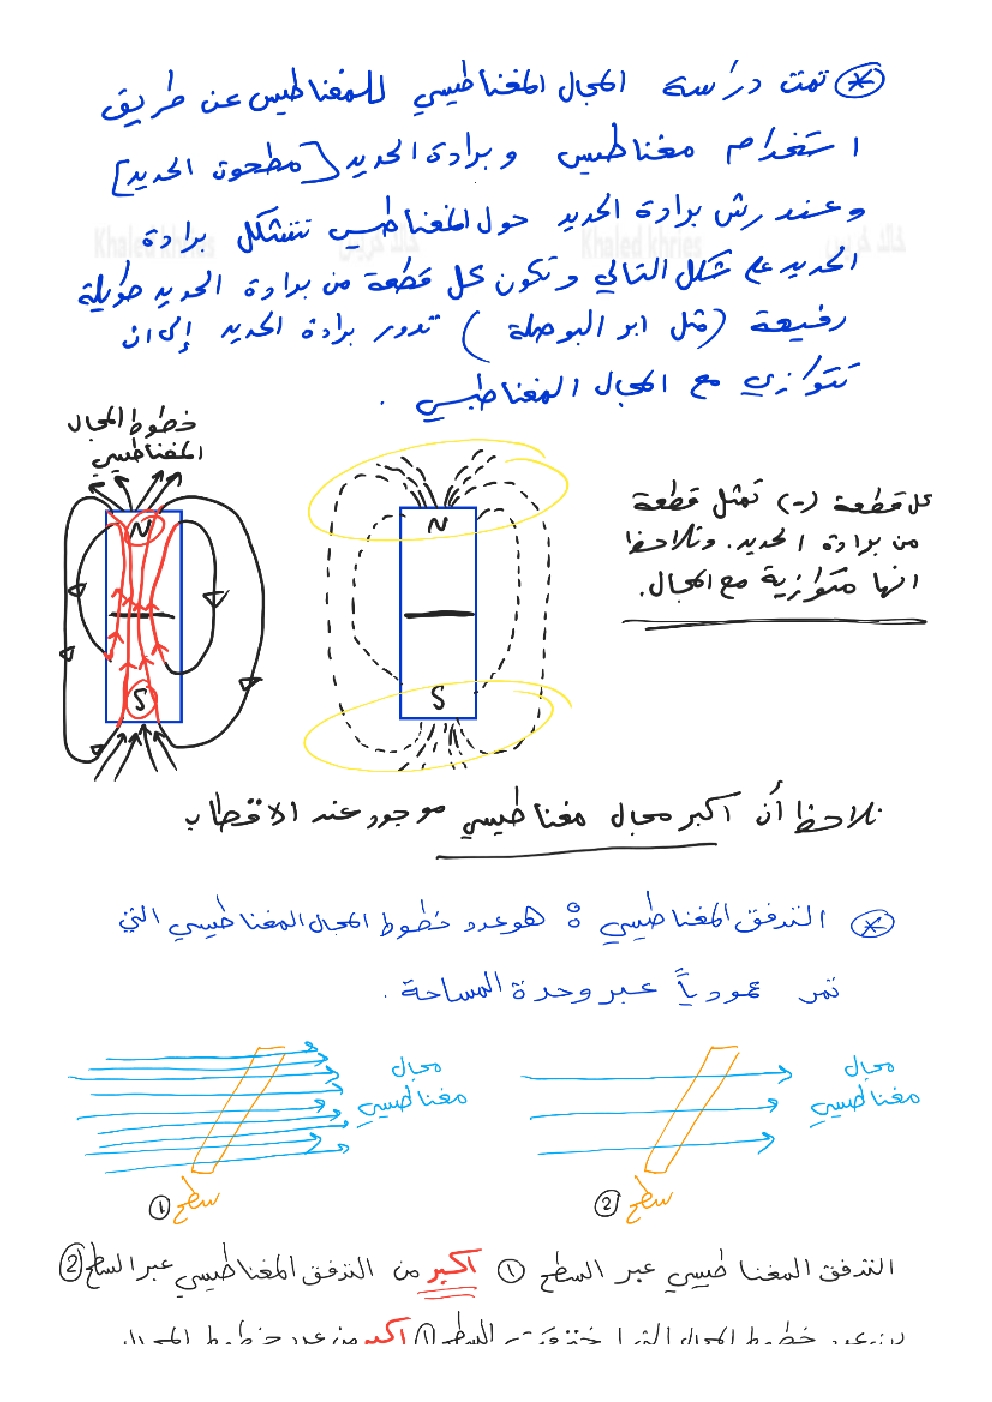 * تمت دراسة المجال المغناطيسي للمغناطيس عن طريق
استخدام مغناطيس وبرادة الحديد [مطحون الحديد]
وعند رش برادة الحديد حول المغناطيس تتشكل برادة
الحديد على شكل التالي وتكون كل قطعة من برادة الحديد طويلة
رفيعة (مثل ابر البوصلة) تدور برادة الحديد إلى ان
تتوازي مع المجال المغناطيسي.
Khaled khries خالد خريس
Khaled khries خالد خريس
خطوط المجال
المغناطيسي
N
S
N
S
كل قطعة (-) تمثل قطعة
من برادة الحديد. ونلاحظ
انها متوازية مع المجال.
نلاحظ أن اكبر مجال مغناطيسي موجود عند الاقطاب
* التدفق المغناطيسي : هو عدد خطوط المجال المغناطيسي التي
تمر عمودياً عبر وحدة المساحة.
مجال
مغناطيسي
سطح ①
مجال
مغناطيسي
سطح ②
التدفق المغناطيسي عبر السطح ① اكبر من التدفق المغناطيسي عبر السطح ②
عدد خطوط المجال التي اخترقت السطح ① اكبر من عدد خطوط المجال